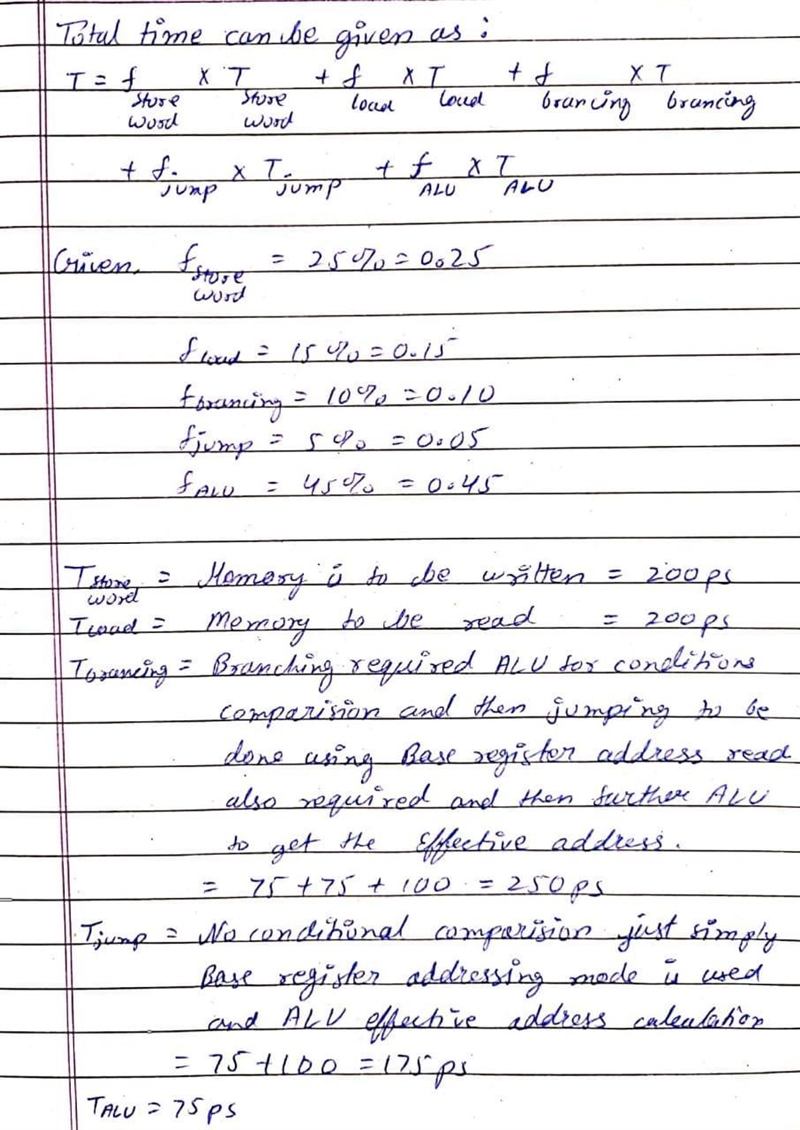 Total time can be given as :
T = f store word x T store word + f load x T load + f brancing x T brancing
+ f jump x T jump + f ALU x T ALU
Given. f store word = 25% = 0.25
f load = 15% = 0.15
f brancing = 10% = 0.10
f jump = 5% = 0.05
f ALU = 45% = 0.45
T store word = Memory is to be written = 200ps
T load = Memory to be read = 200ps
T brancing = Branching required ALU for conditions
comparision and then jumping to be
done using Base register address read
also required and then further ALU
to get the Effective address.
= 75 + 75 + 100 = 250ps
T jump = No conditional comparision just simply
Base register addressing mode is used
and ALU effective address calculation
= 75 + 100 = 175ps
T ALU = 75ps